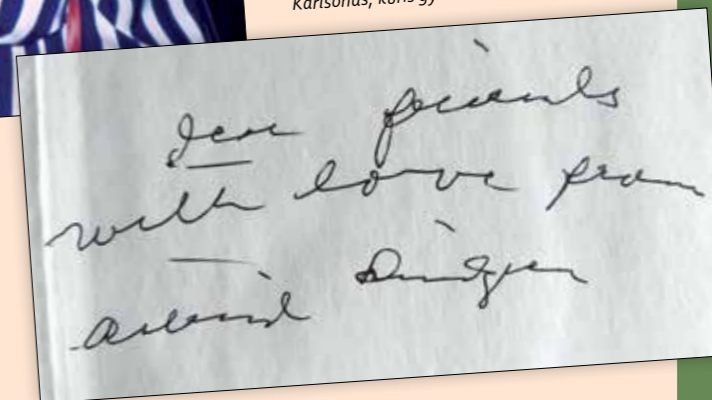 Karlsonas, kuris gy
dear friends
with love from
Astrid Lindgren